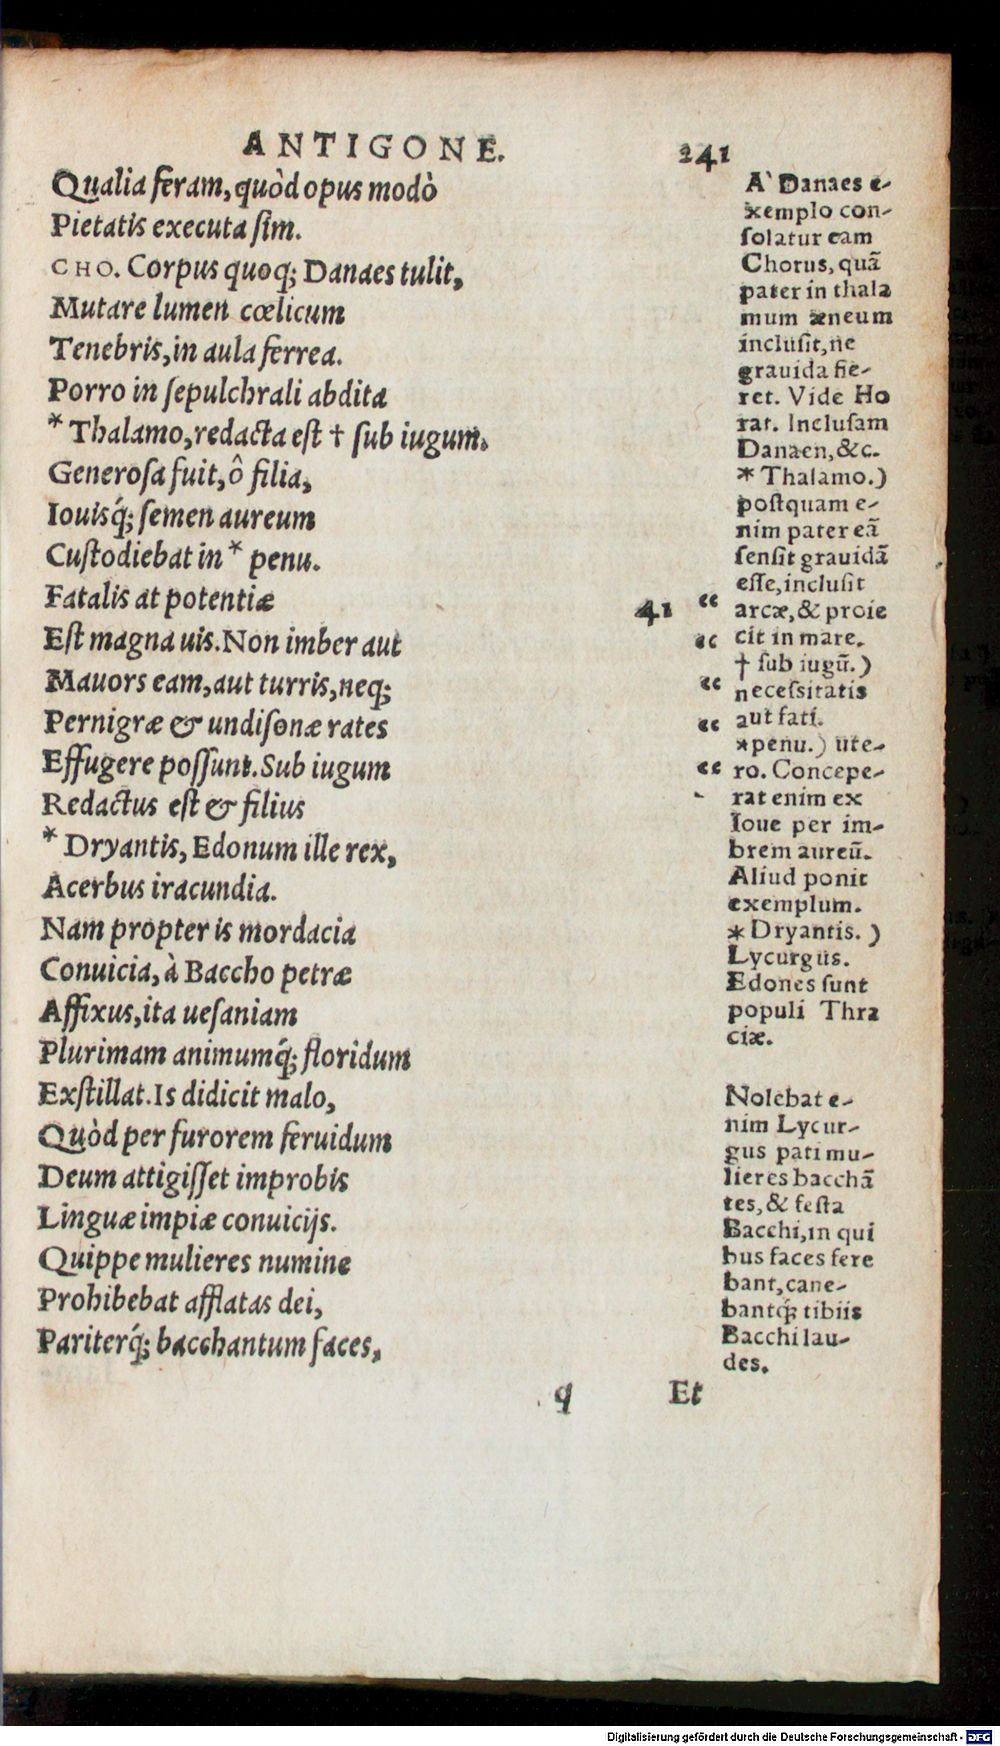 ANTIGONE. 241
Qualia feram, quòd opus modò
Pietatis executa sim.
CHO. Corpus quoq; Danaes tulit,
Mutare lumen cœlicum
Tenebris, in aula ferrea.
Porro in sepulchrali abdita
* Thalamo, redacta est † sub iugum.
Generosa fuit, ô filia,
Iouisq́; semen aureum
Custodiebat in * penu.
Fatalis at potentiæ 41 “
Est magna uis. Non imber aut “
Mauors eam, aut turris, neq; “
Pernigræ & undisonæ rates “
Effugere possunt. Sub iugum “
Redactus est & filius
* Dryantis, Edonum ille rex,
Acerbus iracundia.
Nam propter is mordacia
Conuicia, à Baccho petræ
Affixus, ita uesaniam
Plurimam animumq́; floridum
Exstillat. Is didicit malo,
Quòd per furorem feruidum
Deum attigisset improbis
Linguæ impiæ conuicijs.
Quippe mulieres numine
Prohibebat afflatas dei,
Pariterq́; bacchantum faces,
A` Danaes e-
xemplo con-
solatur eam
Chorus, quā
pater in thala
mum æneum
inclusit, ne
grauida fie-
ret. Vide Ho
rat. Inclusam
Danaen, &c.
* Thalamo.)
postquam e-
nim pater eā
sensit grauidā
esse, inclusit
arcæ, & proie
cit in mare.
† sub iugū.)
necessitatis
aut fati.
*penu.) ute-
ro. Concepe-
rat enim ex
Ioue per im-
brem aureū.
Aliud ponit
exemplum.
* Dryantis.)
Lycurgus.
Edones sunt
populi Thra
ciæ.
Nolebat e-
nim Lycur-
gus pati mu-
lieres bacchā
tes, & festa
Bacchi, in qui
bus faces fere
bant, cane-
bantq́; tibiis
Bacchi lau-
des.
q Et
Digitalisierung gefördert durch die Deutsche Forschungsgemeinschaft - DFG